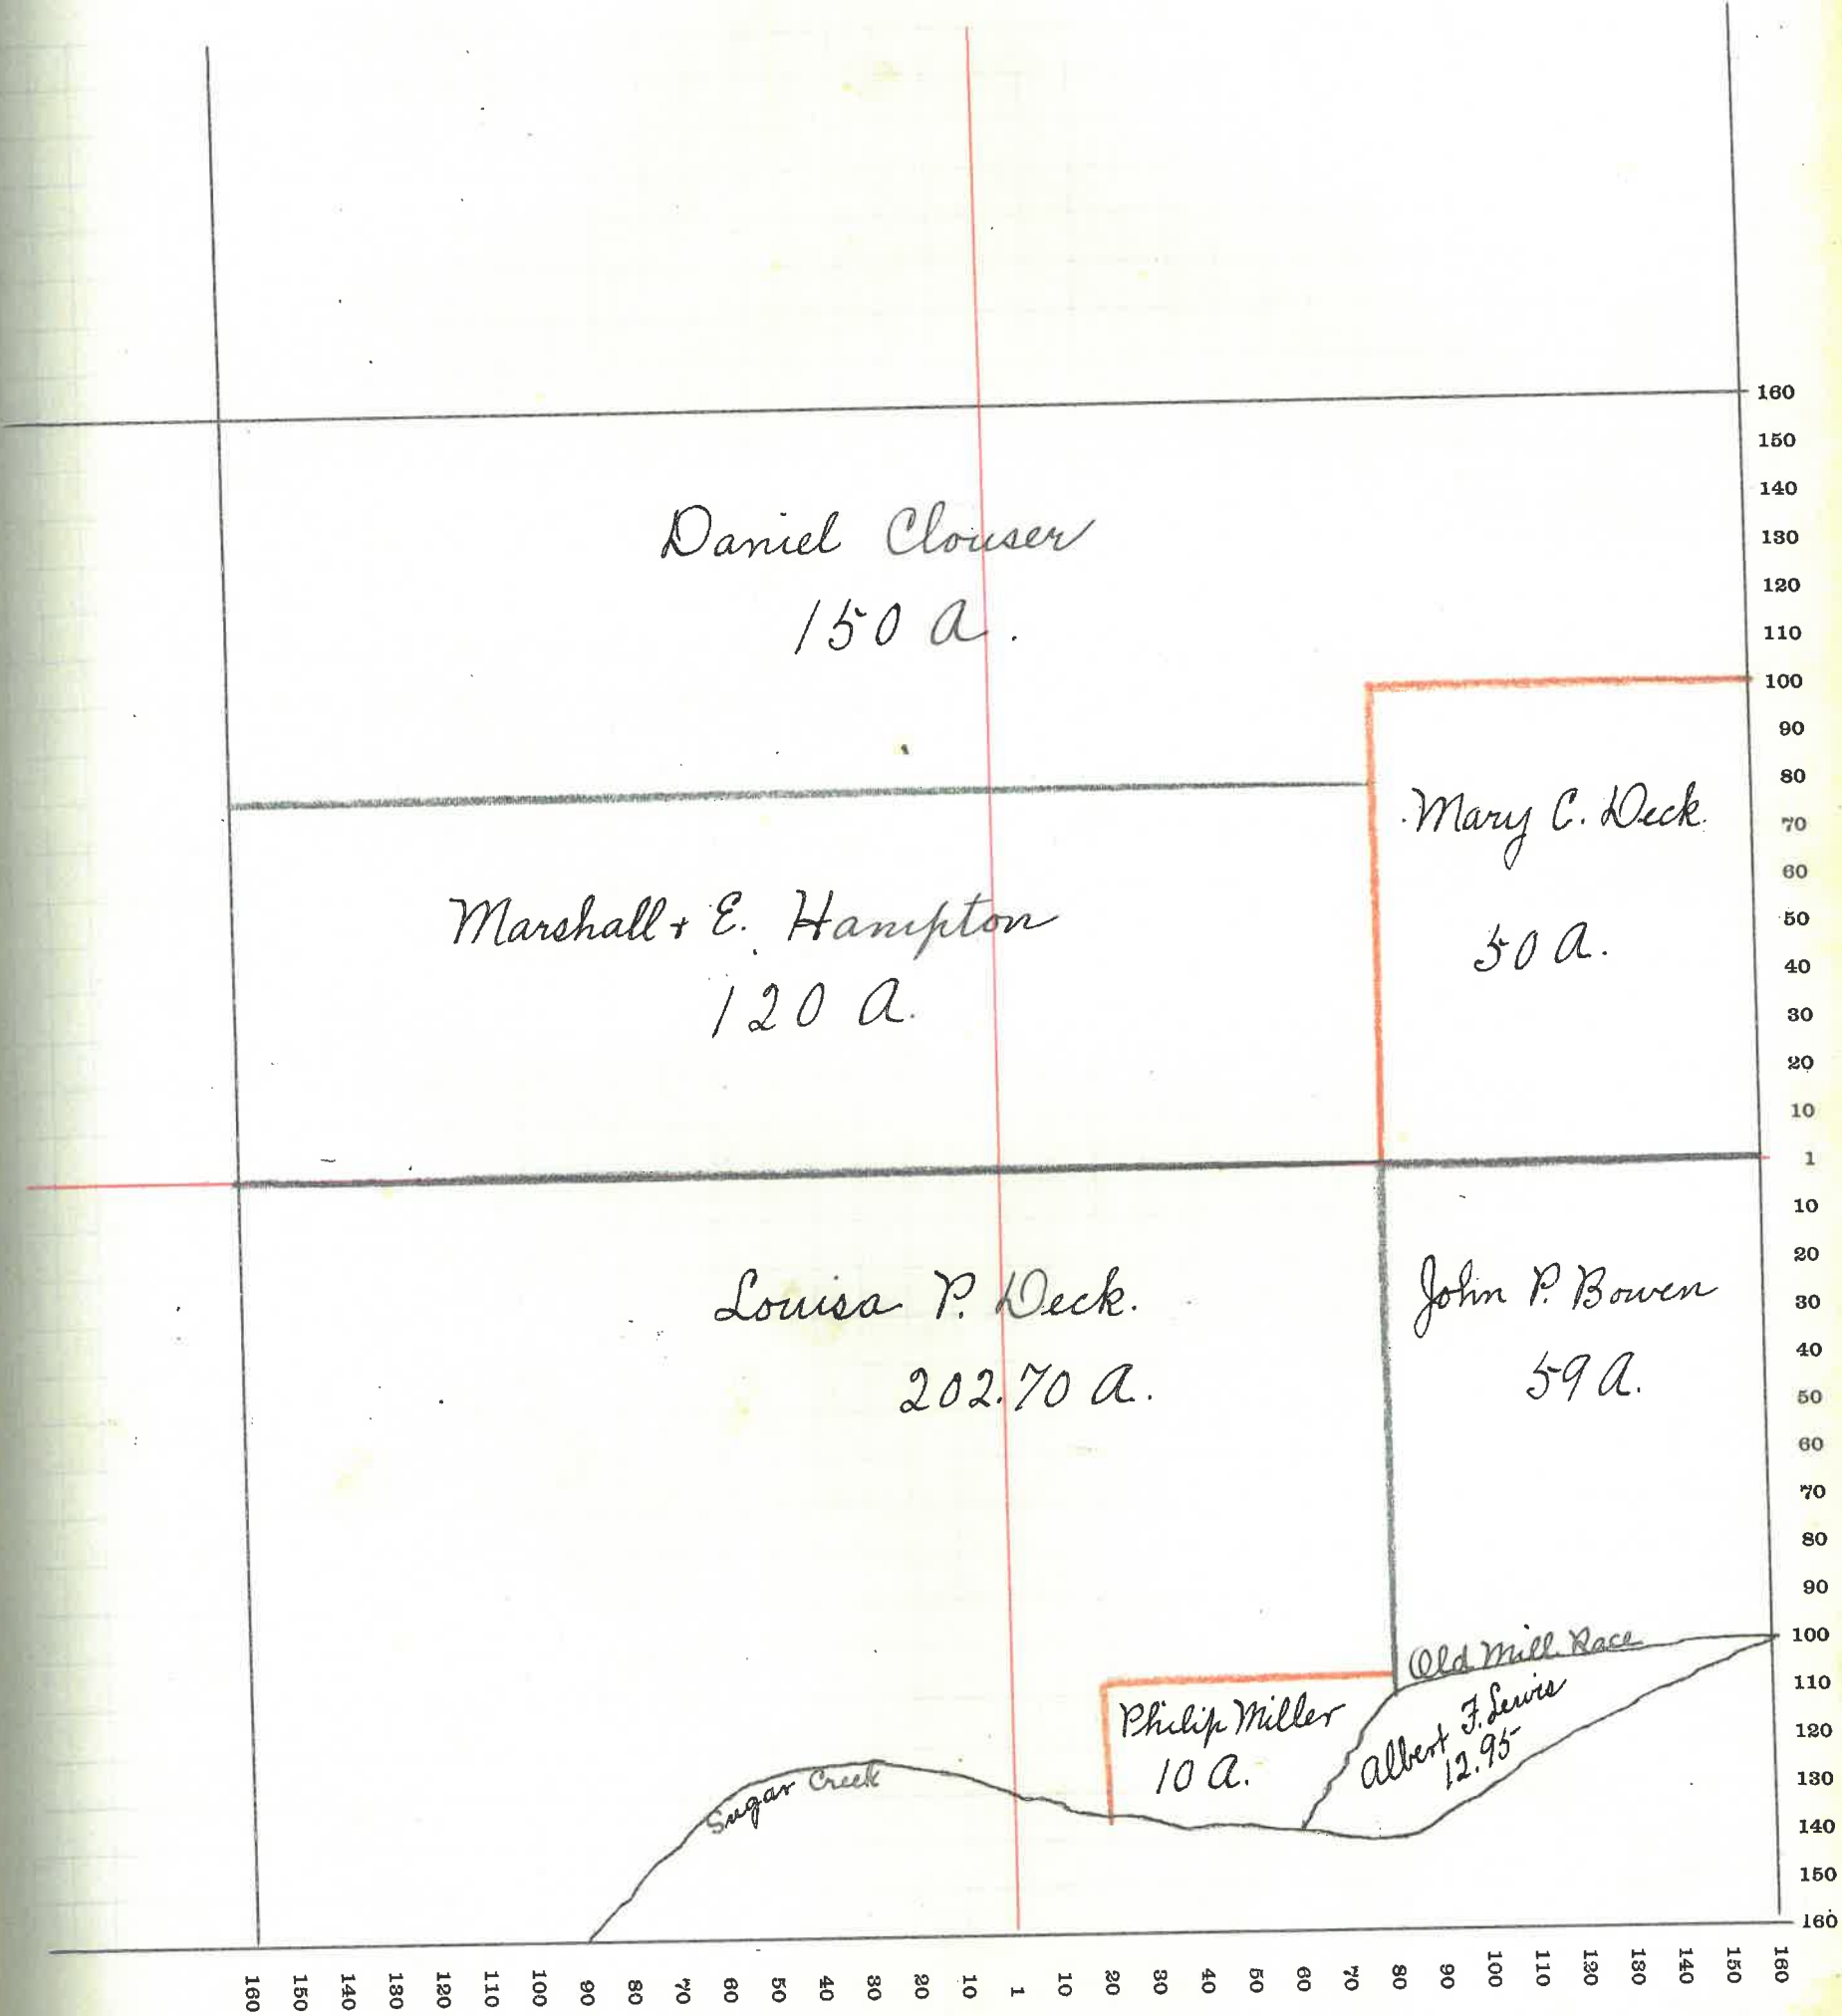 Daniel Clouser
150 A.
Mary C. Deck.
50 A.
Marshall + E. Hampton
120 A.
Louisa P. Deck.
202.70 A.
John P. Bowen
59 A.
Old Mill Race
Philip Miller
10 A.
Albert F. Lewis
12.95
Sugar Creek
160
150
140
130
120
110
100
90
80
70
60
50
40
30
20
10
1
10
20
30
40
50
60
70
80
90
100
110
120
130
140
150
160
160 150 140 130 120 110 100 90 80 70 60 50 40 30 20 10 1 10 20 30 40 50 60 70 80 90 100 110 120 130 140 150 160